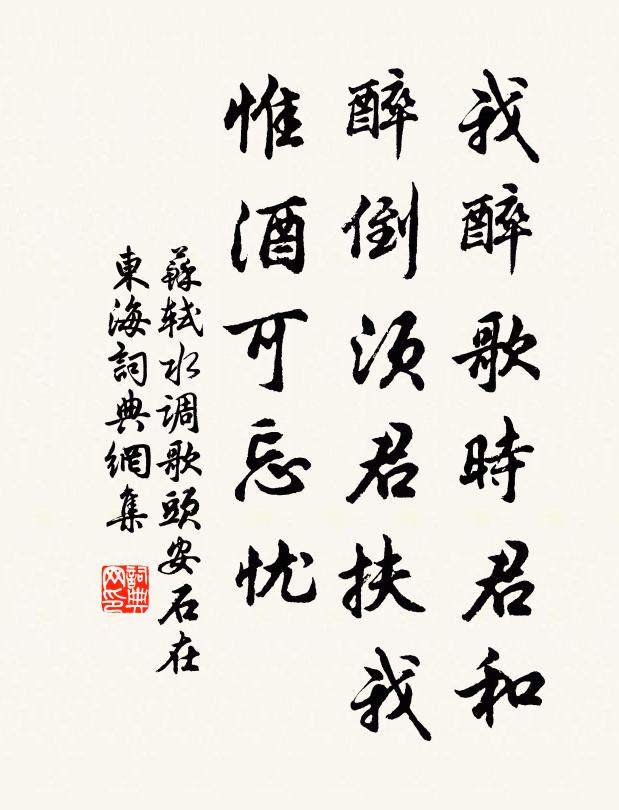 我醉歌時君和
醉倒須君扶我
惟酒可忘忧
蘇軾水调歌頭安石在
東海詞典網集
詞典网印